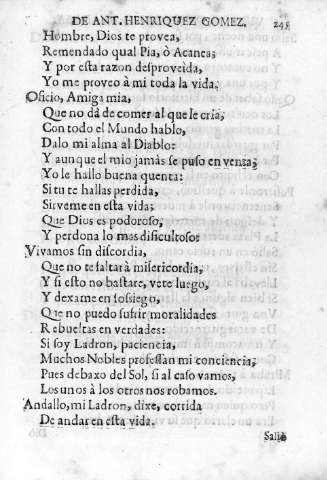 DE ANT. HENRIQUEZ GOMEZ. 245
Hombre, Dios te provea,
Remendado qual Pia, ò Acanea;
Y por esta razon desproveida,
Yo me proveo à mi toda la vida.
Oficio, Amiga mia,
Que no dà de comer al que le cria;
Con todo el Mundo hablo,
Dalo mi alma al Diablo:
Y aunque el mio jamàs se puso en venta;
Yo le hallo buena quenta:
Si tu te hallas perdida,
Sirveme en esta vida;
Que Dios es podoroso,
Y perdona lo mas dificultoso:
Vivamos sin discordia,
Que no te faltarà misericordia,
Y si esto no bastare, vete luego,
Y dexame en sossiego,
Que no puedo sufrir moralidades
Rebueltas en verdades:
Si soy Ladron, paciencia,
Muchos Nobles professan mi conciencia,
Pues debaxo del Sol, si al caso vamos,
Los unos à los otros nos robamos.
Andallo, mi Ladron, dixe, corrida
De andar en esta vida.
Saliò